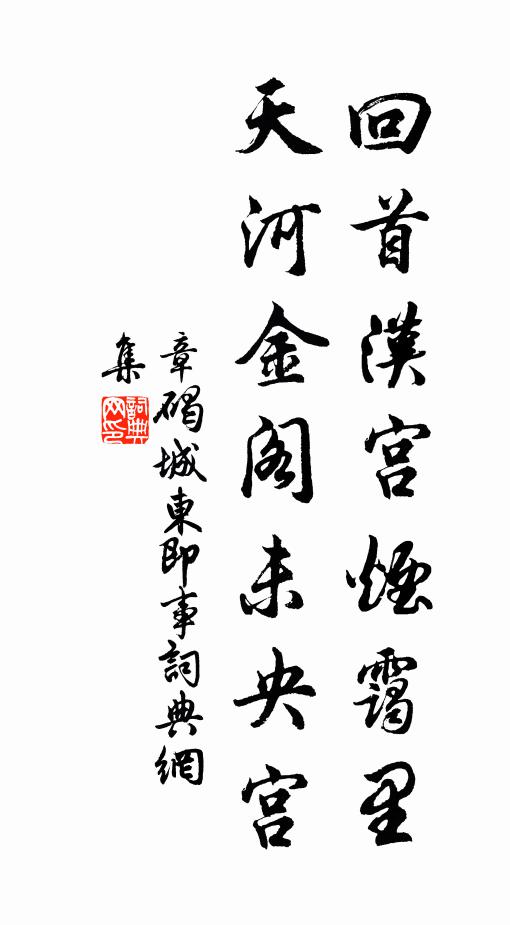 回首漢宮煙靄里
天河金閣未央宮
章碣城東即事詞典網
集
詞典网印